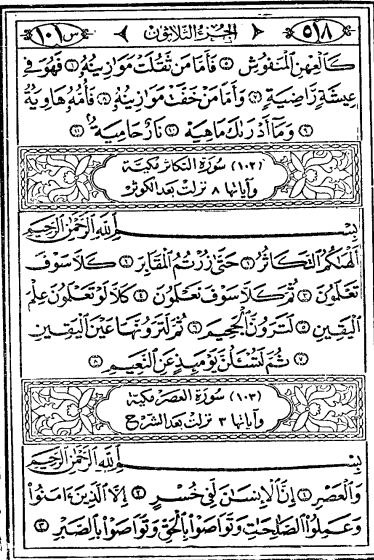 ٥١٨ الجزء الثلاثون س ١٠١
كَٱلۡعِهۡنِ ٱلۡمَنفُوشِ ٥ فَأَمَّا مَن ثَقُلَتۡ مَوَٰزِينُهُۥ ٦ فَهُوَ فِي
عِيشَةٖ رَّاضِيَةٖ ٧ وَأَمَّا مَنۡ خَفَّتۡ مَوَٰزِينُهُۥ ٨ فَأُمُّهُۥ هَاوِيَةٞ
٩ وَمَآ أَدۡرَىٰكَ مَا هِيَهۡ ١٠ نَارٌ حَامِيَةُۢ ١١
(١٠٢) سورة التكاثر مكية
وآياتها ٨ نزلت بعد الكوثر
بِسۡمِ ٱللَّهِ ٱلرَّحۡمَٰنِ ٱلرَّحِيمِ
أَلۡهَىٰكُمُ ٱلتَّكَاثُرُ ١ حَتَّىٰ زُرۡتُمُ ٱلۡمَقَابِرَ ٢ كَلَّا سَوۡفَ
تَعۡلَمُونَ ٣ ثُمَّ كَلَّا سَوۡفَ تَعۡلَمُونَ ٤ كَلَّا لَوۡ تَعۡلَمُونَ عِلۡمَ
ٱلۡيَقِينِ ٥ لَتَرَوُنَّ ٱلۡجَحِيمَ ٦ ثُمَّ لَتَرَوُنَّهَا عَيۡنَ ٱلۡيَقِينِ
٧ ثُمَّ لَتُسۡـَٔلُنَّ يَوۡمَئِذٍ عَنِ ٱلنَّعِيمِ ٨
(١٠٣) سورة العصر مكية
وآياتها ٣ نزلت بعد الشرح
بِسۡمِ ٱللَّهِ ٱلرَّحۡمَٰنِ ٱلرَّحِيمِ
وَٱلۡعَصۡرِ ١ إِنَّ ٱلۡإِنسَٰنَ لَفِي خُسۡرٍ ٢ إِلَّا ٱلَّذِينَ ءَامَنُواْ
وَعَمِلُواْ ٱلصَّٰلِحَٰتِ وَتَوَاصَوۡاْ بِٱلۡحَقِّ وَتَوَاصَوۡاْ بِٱلصَّبۡرِ ٣